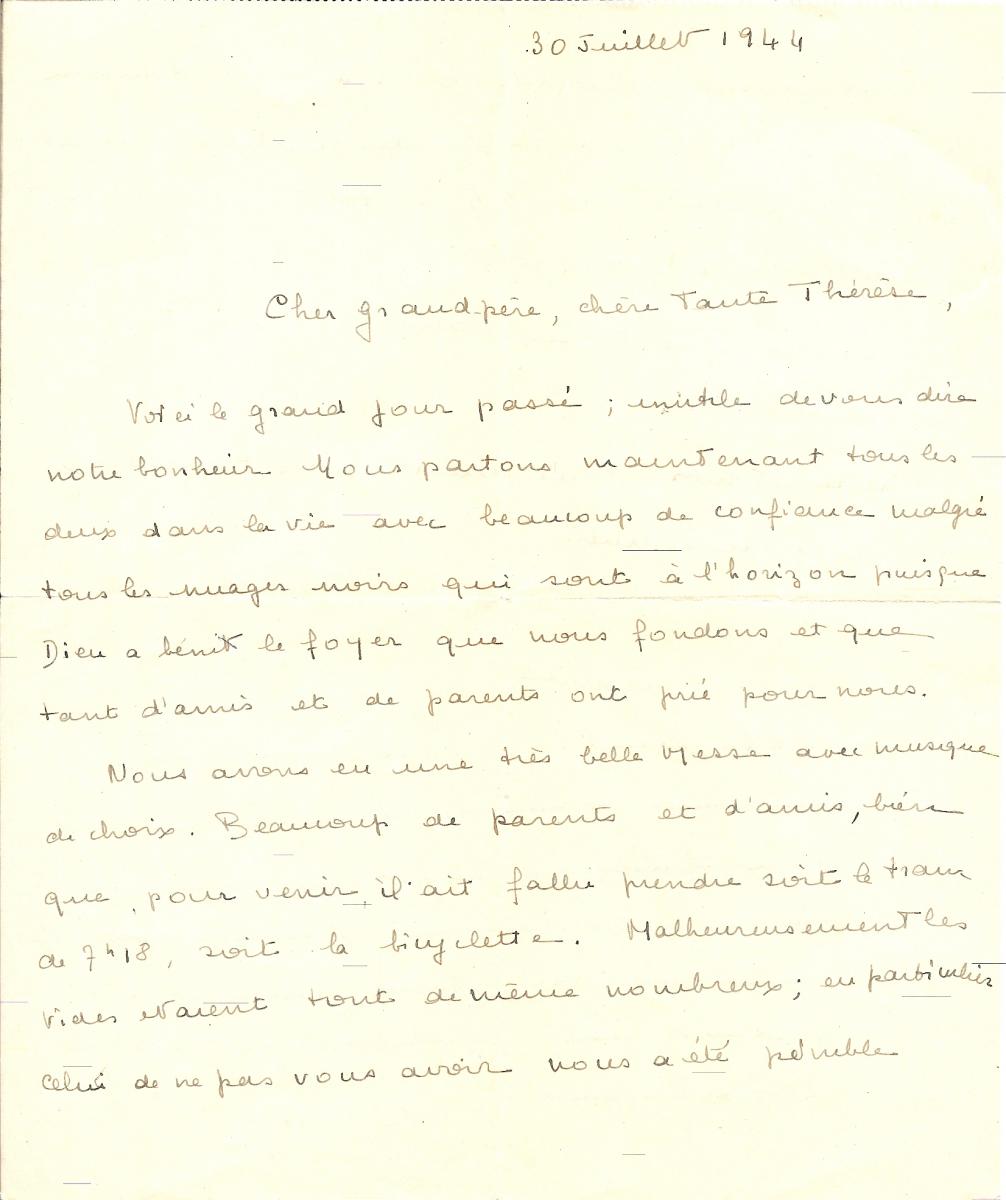 30 Juillet 1944
Cher grand-père, chère tante Thérèse,
Voici le grand jour passé ; inutile de vous dire
notre bonheur. Nous partons maintenant tous les
deux dans la vie avec beaucoup de confiance malgré
tous les nuages noirs qui sont à l'horizon puisque
Dieu a bénit le foyer que nous fondons et que
tant d'amis et de parents ont prié pour nous.
Nous avons eu une très belle Messe avec musique
de choix. Beaucoup de parents et d'amis, bien
que, pour venir, il ait fallu prendre soit le train
de 7h18, soit la bicyclette. Malheureusement les
vides étaient tout de même nombreux ; en particulier
celui de ne pas vous avoir nous a été pénible